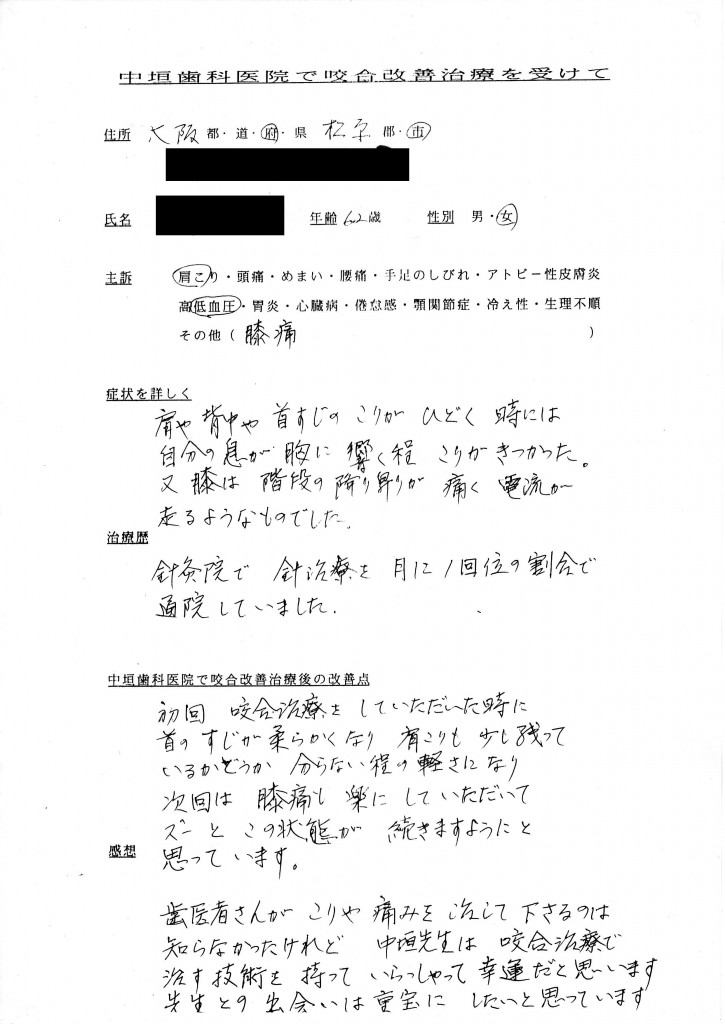 中垣歯科医院で咬合改善治療を受けて
住所 大阪 都・道・府・県 松原 郡・市
氏名 年齢 62 歳 性別 男・女
主訴 肩こり・頭痛・めまい・腰痛・手足のしびれ・アトピー性皮膚炎
高低血圧・胃炎・心臓病・倦怠感・顎関節症・冷え性・生理不順
その他（ 膝痛 ）
症状を詳しく
肩や背中や首すじのこりがひどく時には
自分の息が胸に響く程こりがきつかった。
又膝は階段の降り昇りが痛く電流が
走るようなものでした。
治療歴
針灸院で針治療を月に1回位の割合で
通院していました.
中垣歯科医院で咬合改善治療後の改善点
初回咬合治療をしていただいた時に
首のすじが柔らかくなり肩こりも少し残って
いるかどうか分らない程の軽さになり
次回は膝痛も楽にしていただいて
ズーとこの状態が続きますようにと
思っています。
感想
歯医者さんがこりや痛みを治して下さるのは
知らなかったけれど中垣先生は咬合治療で
治す技術を持っていらっしゃって幸運だと思います
先生との出会いは重宝にしたいと思っています